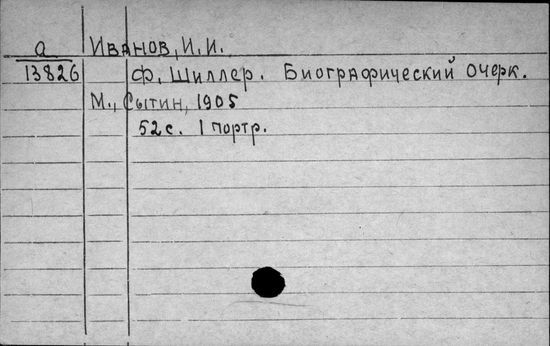 а Иванов, И. И.
13826 Ф. Шиллер. Биографический очерк.
М., Сытин, 1905
52 с. 1 портр.